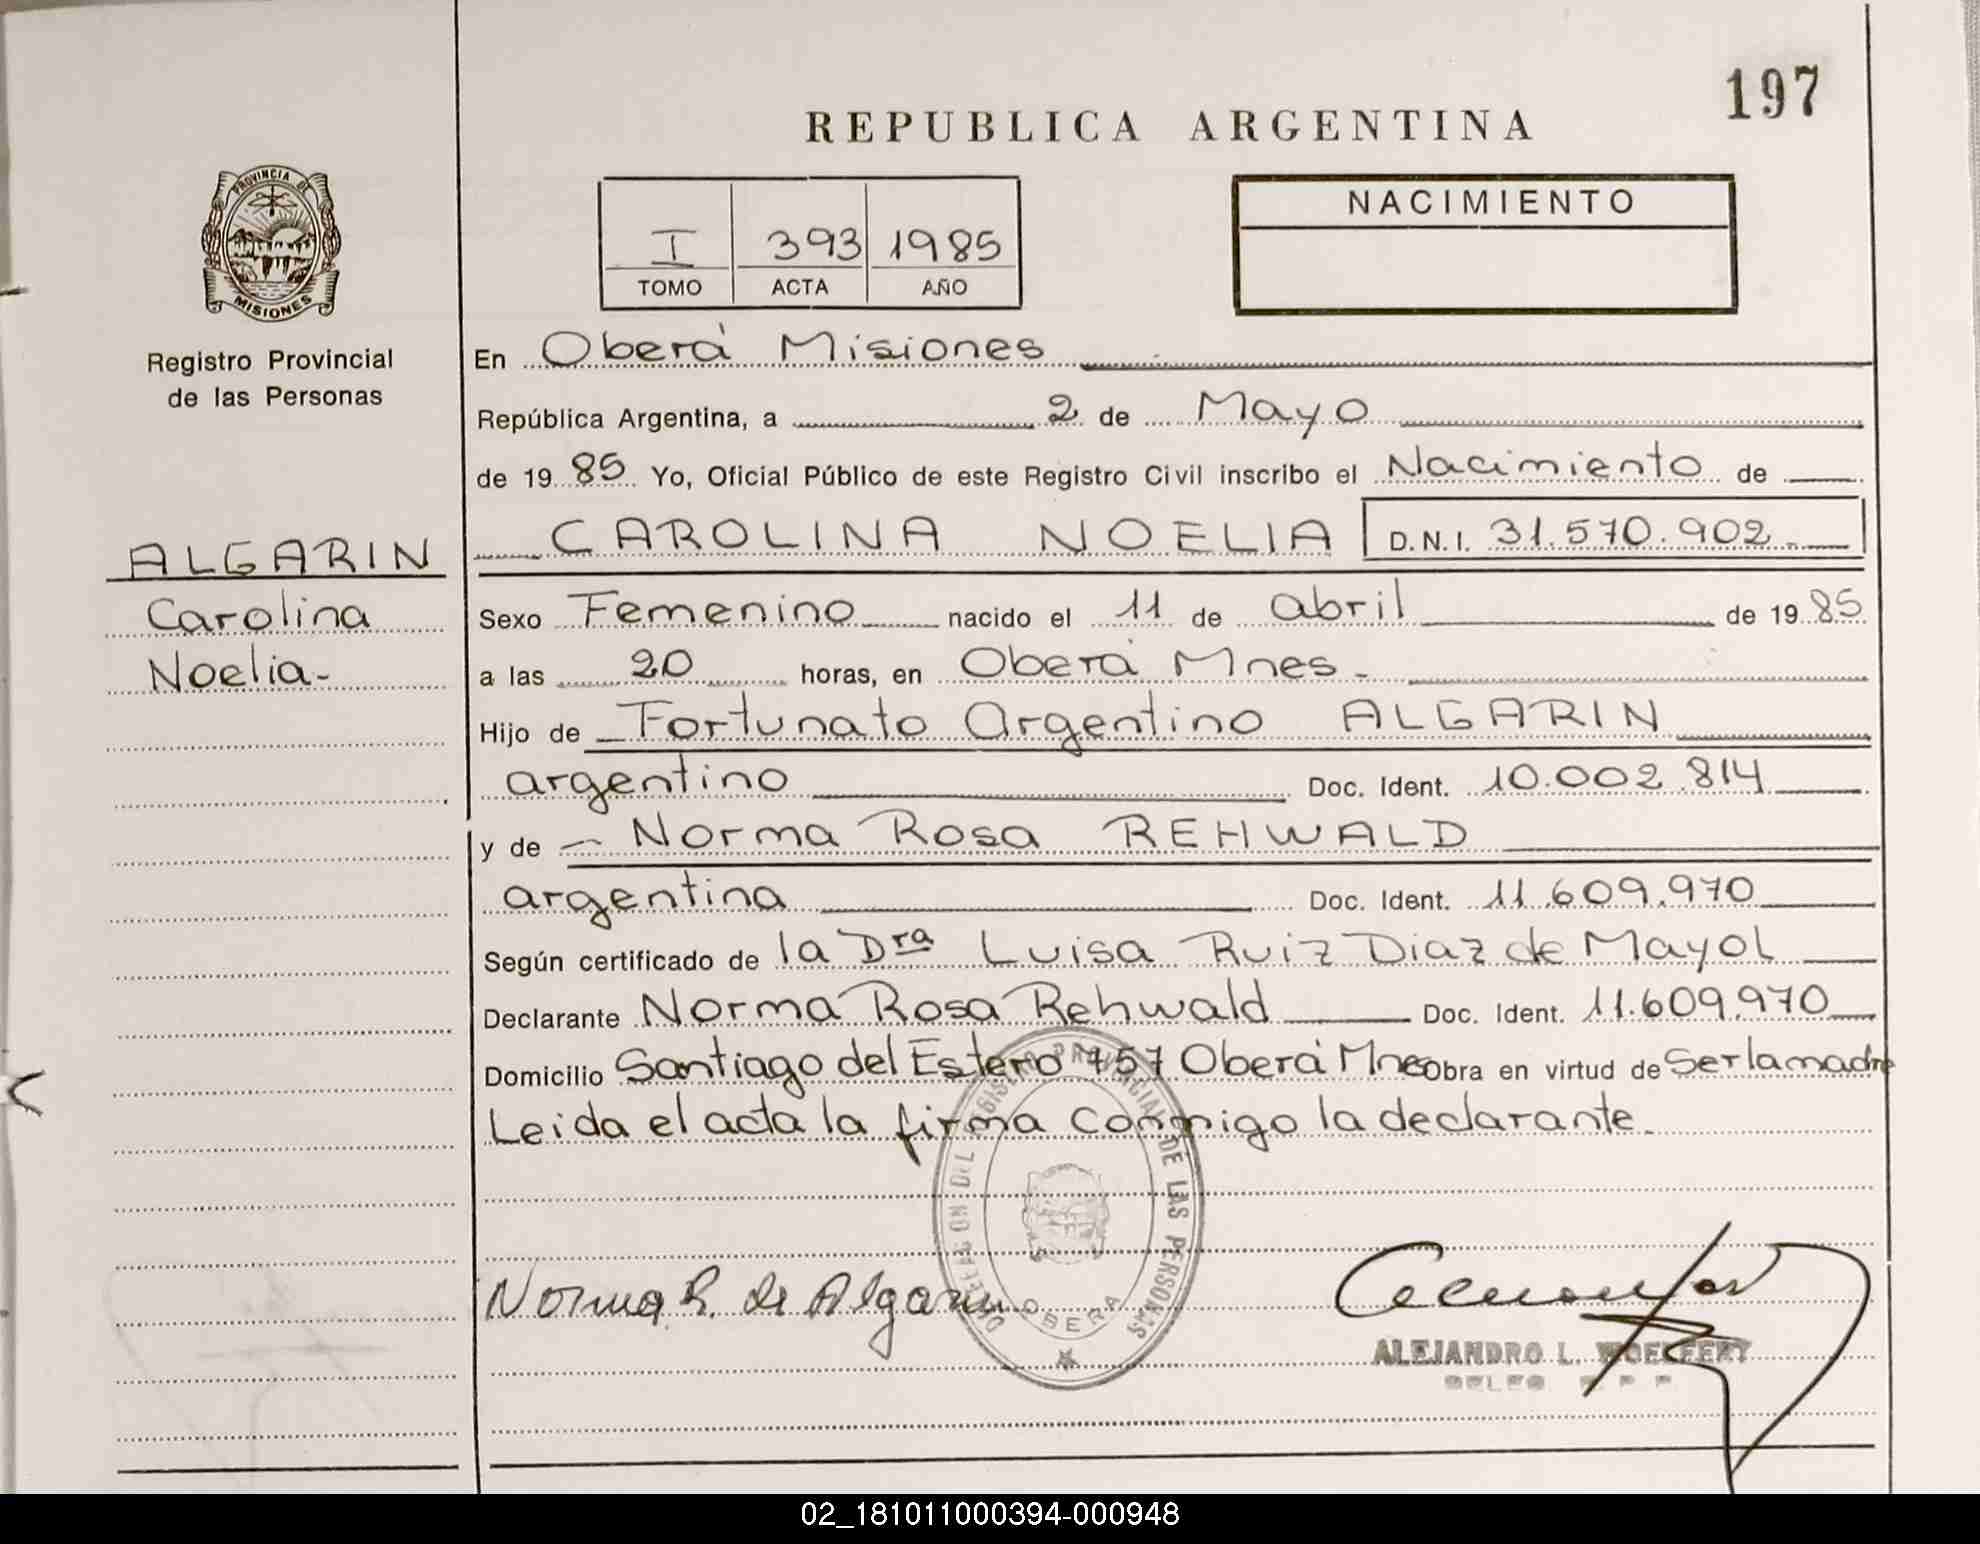 197
REPUBLICA ARGENTINA
PROVINCIA DE
MISIONES
Registro Provincial
de las Personas
I 393 1985
TOMO ACTA AÑO
NACIMIENTO
En Oberá Misiones
República Argentina, a 2 de Mayo
de 19 85 Yo, Oficial Público de este Registro Civil inscribo el Nacimiento de
CAROLINA NOELIA D.N.I. 31.570.902.
ALGARIN
Carolina
Noelia-
Sexo Femenino nacido el 11 de abril de 19 85
a las 20 horas, en Oberá Mnes.
Hijo de Fortunato Argentino ALGARIN
argentino Doc. Ident. 10.002.814
y de Norma Rosa REHWALD
argentina Doc. Ident. 11.609.970
Según certificado de la Dra Luisa Ruiz Diaz de Mayol
Declarante Norma Rosa Rehwald Doc. Ident. 11.609.970
Domicilio Santiago del Estero 757 Oberá Mnes Obra en virtud de Ser la madre
Leida el acta la firma conmigo la declarante.
DELEGACION DEL REGISTRO PROVINCIAL DE LAS PERSONAS
OBERA
Norma R. de Algarin
ALEJANDRO L. WOELFERT
DELEG. R. P. P.
02_181011000394-000948